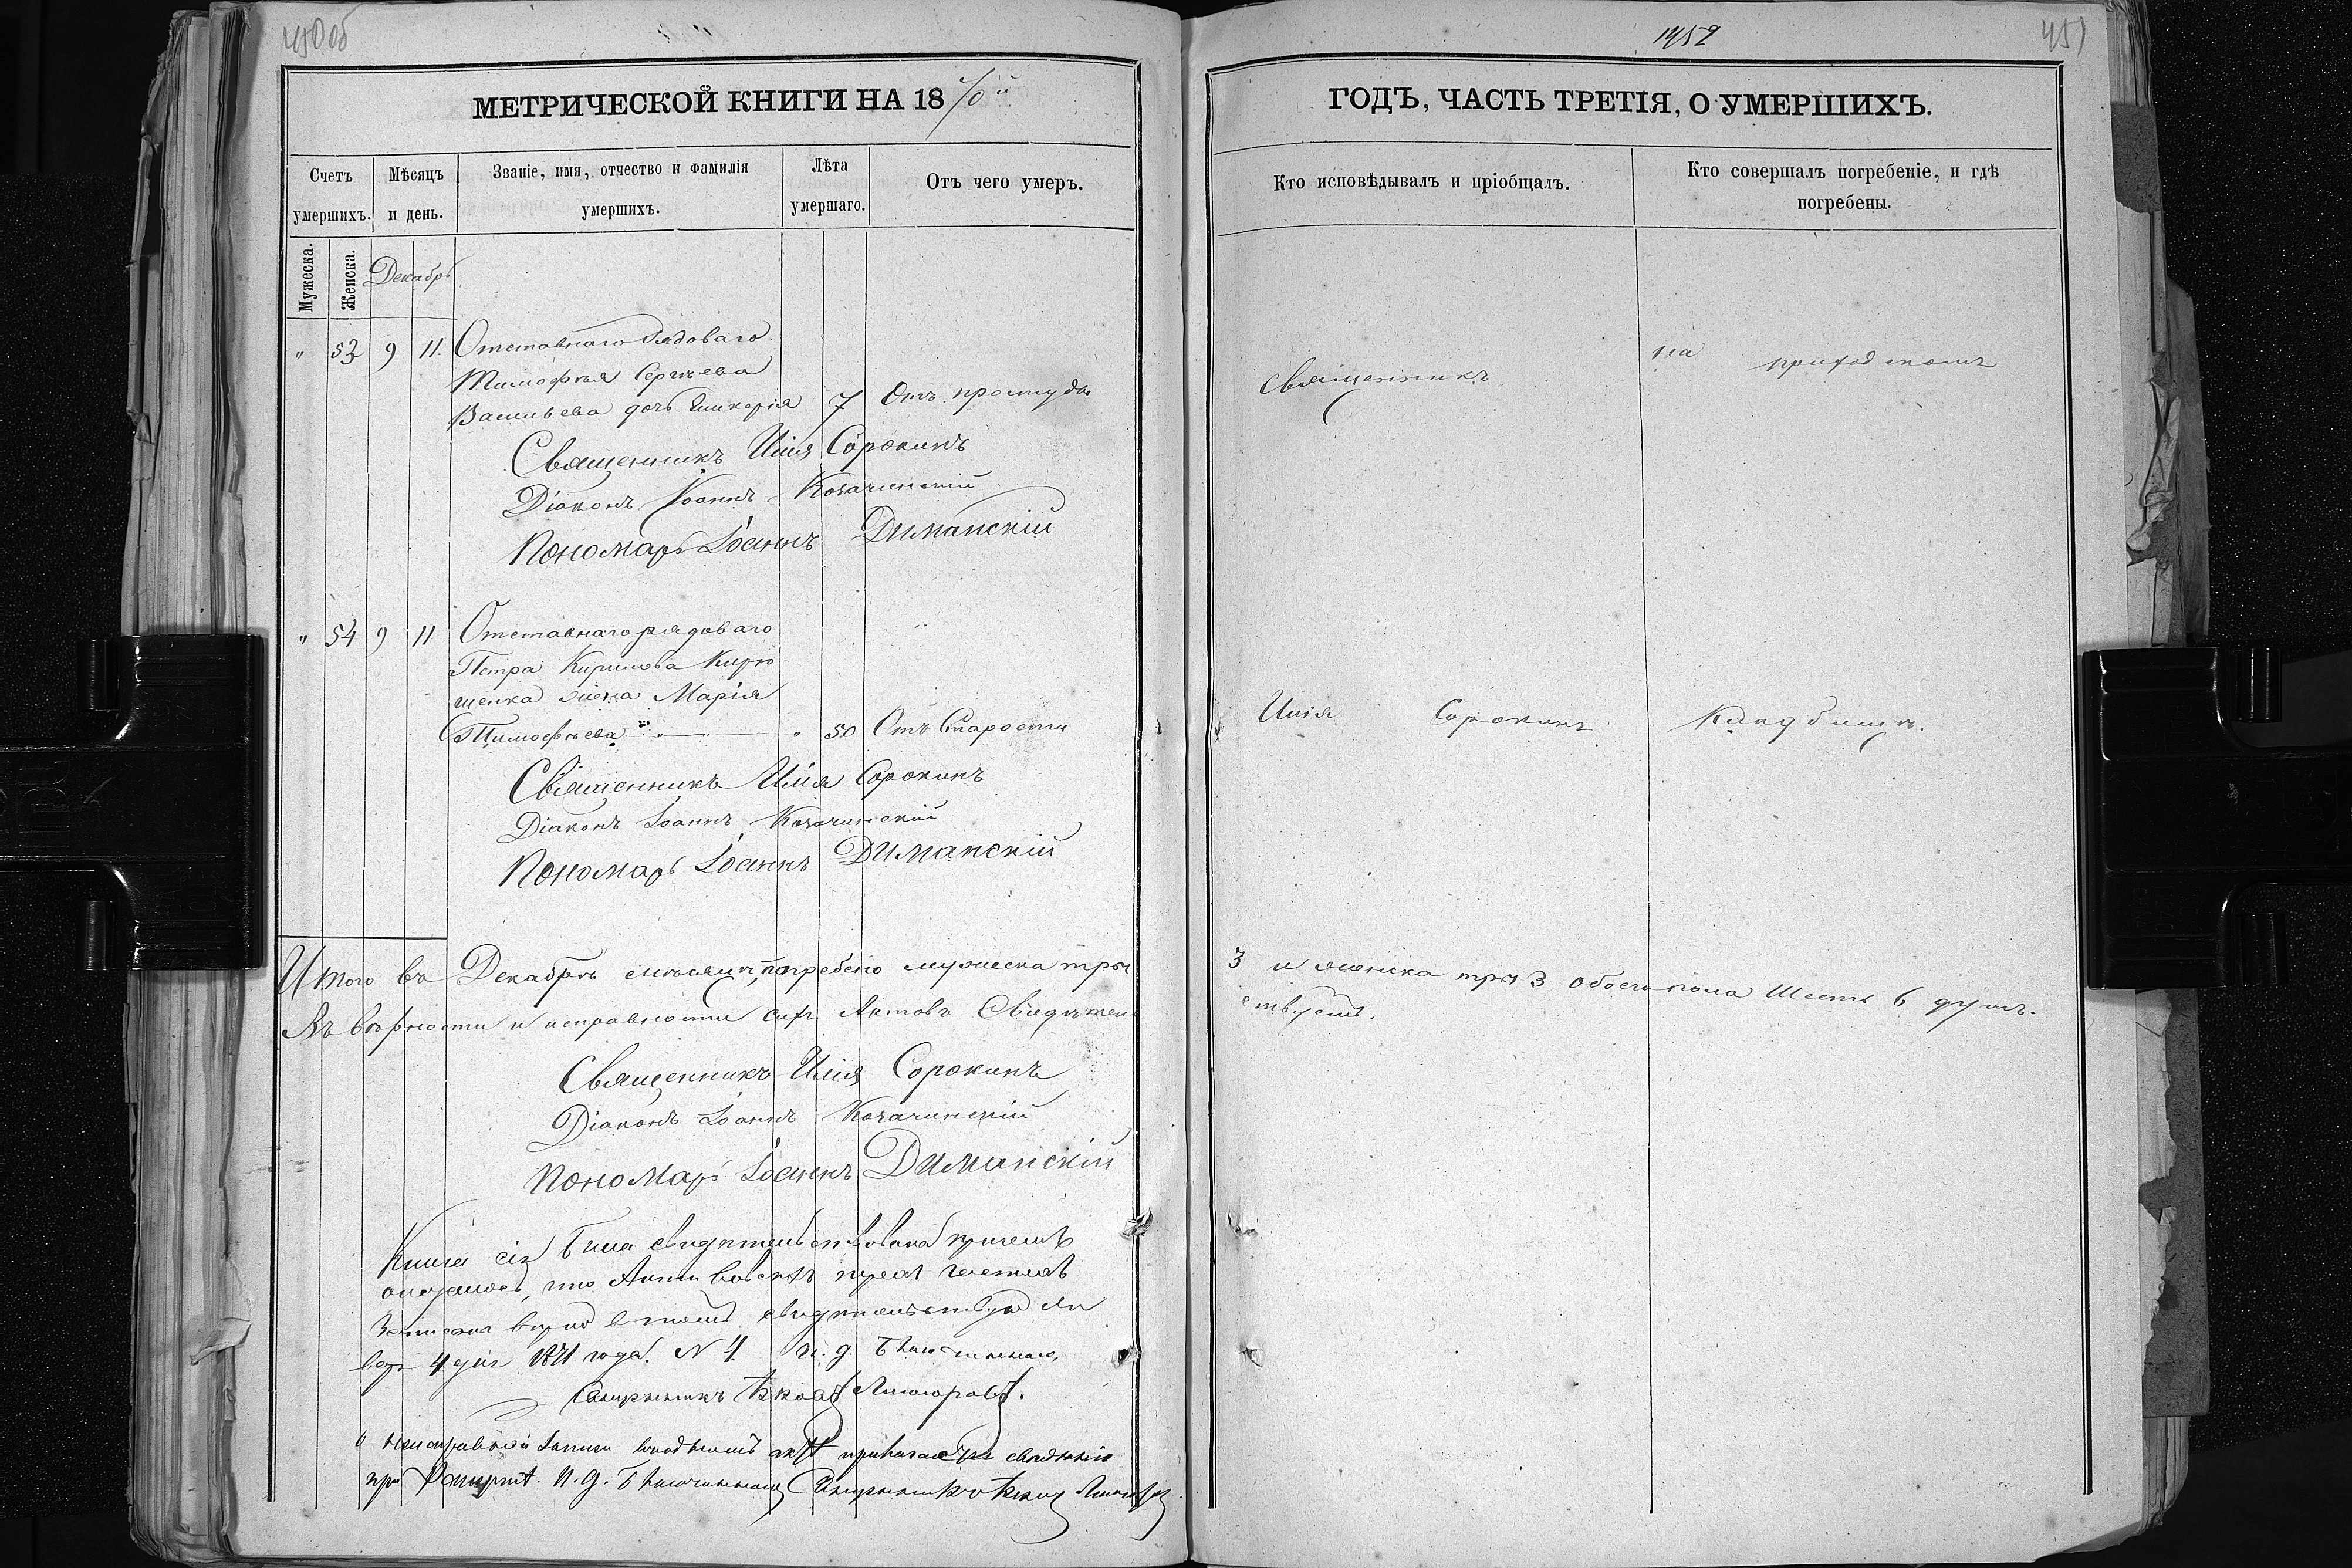 450 об
1452
451
МЕТРИЧЕСКОЙ КНИГИ НА 1870й
ГОДЪ, ЧАСТЬ ТРЕТІЯ, О УМЕРШИХЪ.
Счетъ умершихъ.
Мѣсяцъ и день.
Званіе, имя, отчество и фамилія умершихъ.
Лѣта умершаго.
Отъ чего умеръ.
Кто исповѣдывалъ и пріобщалъ.
Кто совершалъ погребеніе, и гдѣ погребены.
Мужеска.
Женска.
Декабрь
" 53 9 11. Отставнаго рядоваго
Тимофея Сергѣева
Васильева дочь Гликерія 7 Отъ простуды
Священникъ
на приходскомъ
Священникъ Илія Сорокинъ
Діаконъ Іоаннъ Козачинскій
Пономарь Іоаннъ Диманскій
" 54 9 11 Отставнаго рядоваго
Петра Кирилова Кирю
шенка жена Марія
Тимофѣева 50 Отъ Старости
Илія Сорокинъ
Кладбищѣ.
Священникъ Илія Сорокинъ
Діаконъ Іоаннъ Козачинскій
Пономарь Іоаннъ Диманскій
Итого въ Декабрѣ мѣсяцѣ погребено мужеска три 3 и женска три 3 обоего пола Шесть 6 душъ.
Въ вѣрности и исправности сихъ Актовъ Свидѣтель ствуемъ.
Священникъ Илія Сорокинъ
Діаконъ Іоаннъ Козачинскій
Пономарь Іоаннъ Диманскій
Книга сія была свидѣтельствована причемъ
оказалось, что Акты во всѣхъ трехъ частяхъ
Записаны вѣрно въ томъ свидѣтельствую Ян
варя 4 дня 1871 года. N 1. И. д. Благочиннаго,
Священникъ
при Рапортѣ. И. д. Благочиннаго Священникъ